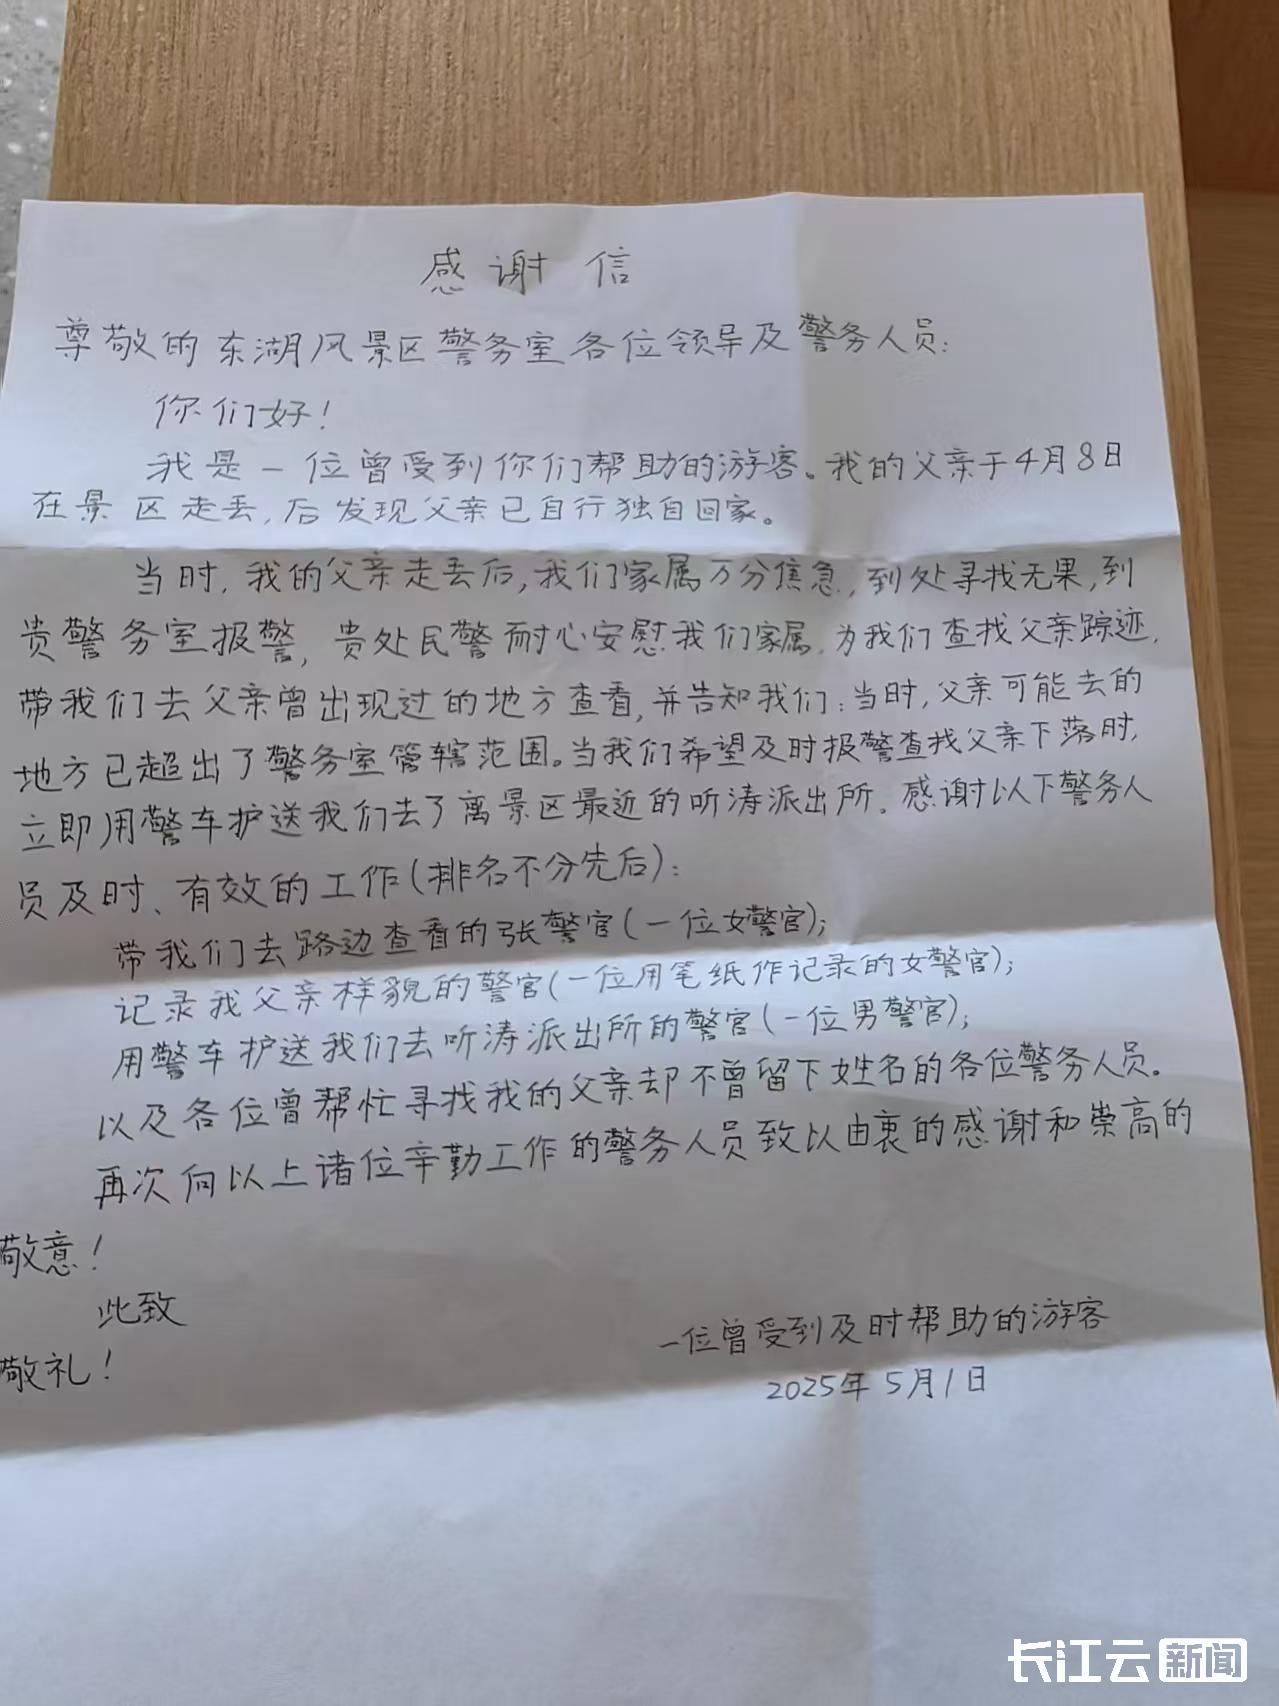 感谢信
尊敬的东湖风景区警务室各位领导及警务人员：
你们好！
我是一位曾受到你们帮助的游客。我的父亲于4月8日
在景区走丢，后发现父亲已自行独自回家。
当时，我的父亲走丢后，我们家属万分焦急，到处寻找无果，到
贵警务室报警，贵处民警耐心安慰我们家属，为我们查找父亲踪迹，
带我们去父亲曾出现过的地方查看，并告知我们：当时，父亲可能去的
地方已超出了警务室管辖范围。当我们希望及时报警查找父亲下落时，
立即用警车护送我们去了离景区最近的听涛派出所。感谢以下警务人
员及时、有效的工作（排名不分先后）：
带我们去路边查看的张警官（一位女警官）；
记录我父亲样貌的警官（一位用笔纸作记录的女警官）；
用警车护送我们去听涛派出所的警官（一位男警官）；
以及各位曾帮忙寻找我的父亲却不曾留下姓名的各位警务人员。
再次向以上诸位辛勤工作的警务人员致以由衷的感谢和崇高的
敬意！
此致
敬礼！
一位曾受到及时帮助的游客
2025年5月1日
长江云新闻